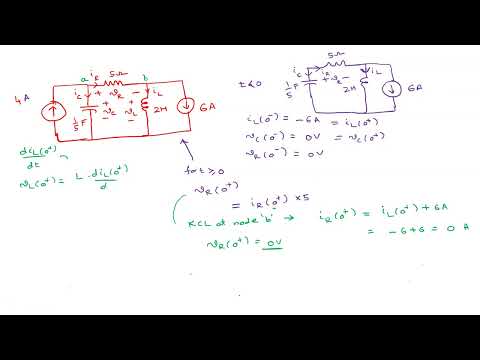 4A
a
i_R
5Ω
b
i_C
+ v_R −
i_L
1/5 F
+ v_C −
+ v_L −
2H
6A
t<0
5Ω
i_C
i_R
+ v_R −
i_L
1/5 F
2H
6A
i_L(0⁻) = −6A = i_L(0⁺)
v_C(0⁻) = 0V = v_C(0⁺)
v_R(0⁻) = 0V
di_L(0⁺)/dt =
v_L(0⁺) = L · di_L(0⁺)/d
for t≥0
v_R(0⁺)
= i_R(0⁺) × 5
KCL at node 'b' → i_R(0⁺) = i_L(0⁺) + 6A
= −6+6 = 0 A
v_R(0⁺) = 0V